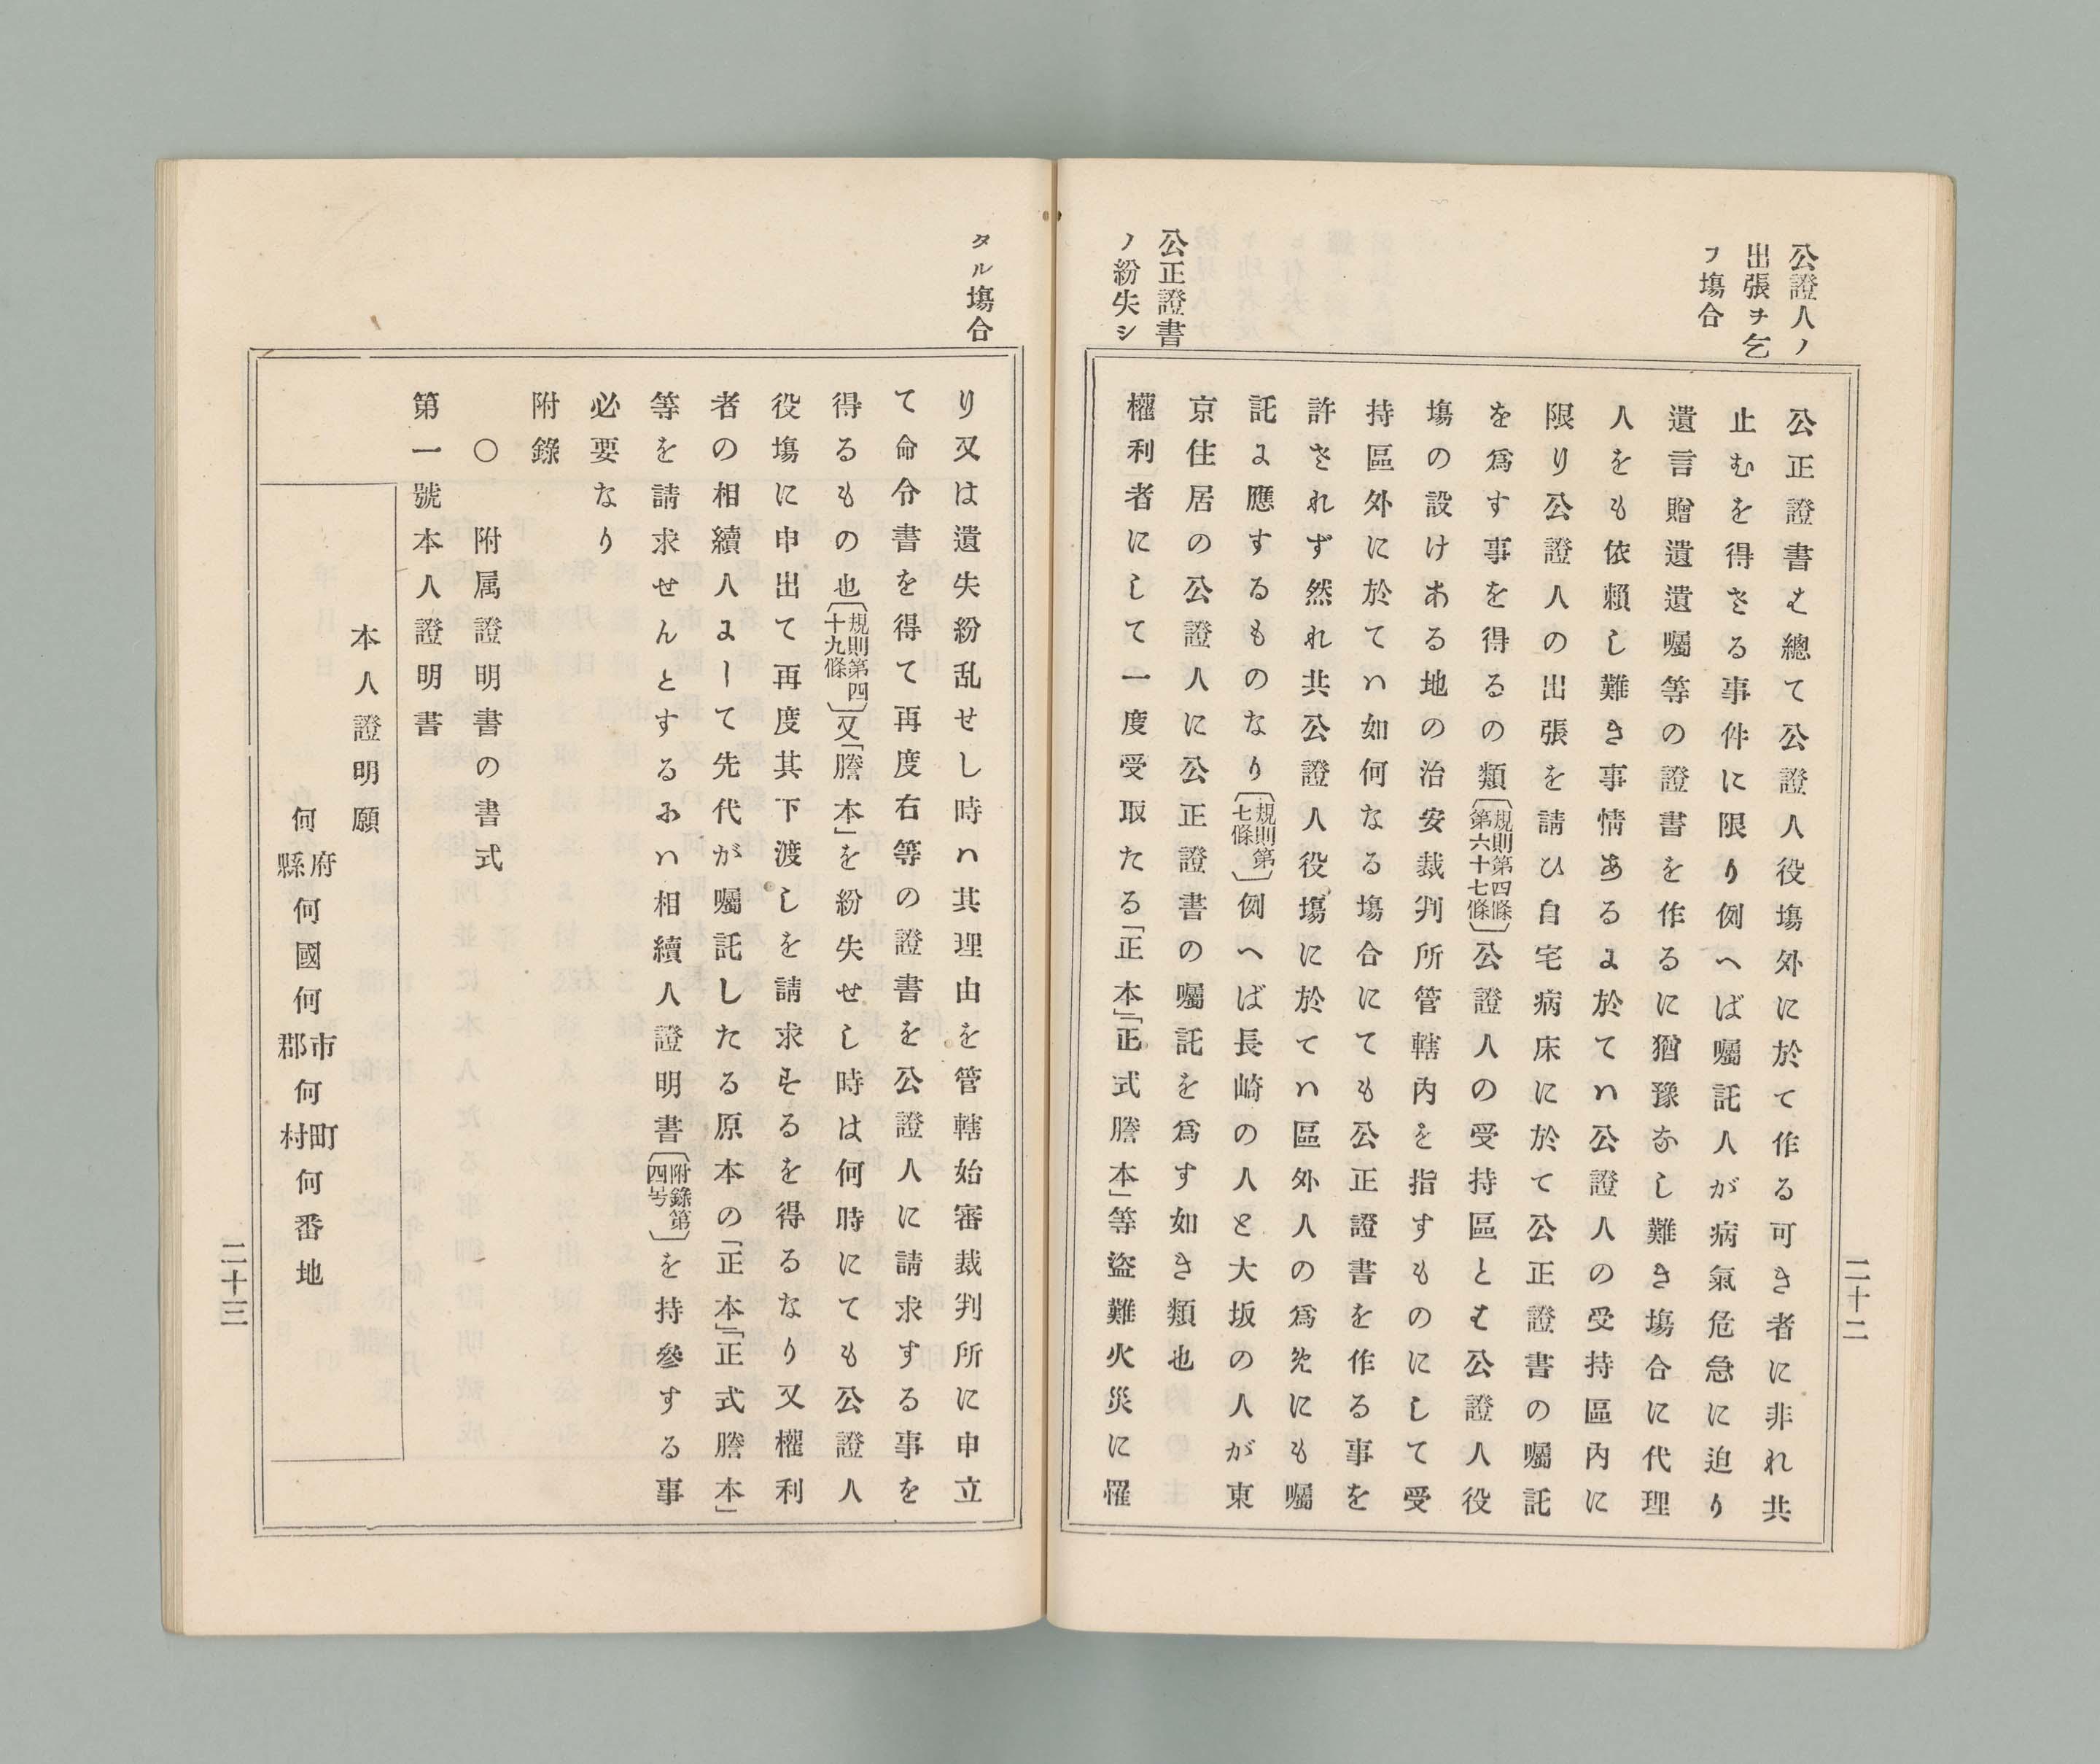 公證人ノ
出張ヲ乞
フ塲合
公正證書は總て公證人役塲外に於て作る可き者に非れ共
止むを得ざる事件に限り例へば囑託人が病氣危急に迫り
遺言贈遺遺囑等の證書を作るに猶豫なし難き塲合に代理
人をも依賴し難き事情あるに於てハ公證人の受持區内に
限り公證人の出張を請ひ自宅病床に於て公正證書の囑託
を爲す事を得るの類〔規則第四條第六十七條〕公證人の受持區とは公證人役
塲の設けある地の治安裁判所管轄内を指すものにして受
持區外に於てハ如何なる塲合にても公正證書を作る事を
許されず然れ共公證人役塲に於てハ區外人の爲めにも囑
託に應するものなり〔規則第七條〕例へば長崎の人と大坂の人が東
京住居の公證人に公正證書の囑託を爲す如き類也
公正證書
ノ紛失シ
權利者にして一度受取たる「正本」「正式謄本」等盜難火災に罹
二十二
タル塲合
り又は遺失紛乱せし時ハ其理由を管轄始審裁判所に申立
て命令書を得て再度右等の證書を公證人に請求する事を
得るもの也〔規則第四十九條〕又「謄本」を紛失せし時は何時にても公證人
役塲に申出て再度其下渡しを請求するを得るなり又權利
者の相續人にして先代が囑託したる原本の「正本」「正式謄本」
等を請求せんとするにハ相續人證明書〔附錄第四号〕を持參する事
必要なり
附錄
○附属證明書の書式
第一號本人證明書
本人證明願
何府縣何國何市郡何町村何番地
二十三